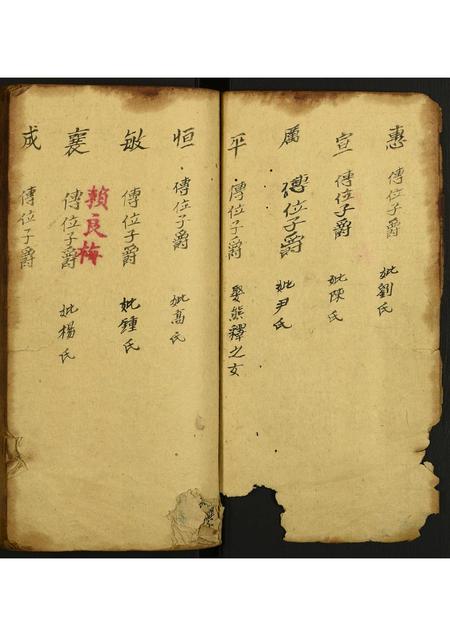 惠 傳位子爵 妣劉氏
宣 傳位子爵 妣陳氏
厲 傳位子爵 妣尹氏
平 傳位子爵 娶熊繹之女
恒 傳位子爵 妣高氏
敏 傳位子爵 妣鍾氏
賴良梅
襄 傳位子爵 妣楊氏
成 傳位子爵